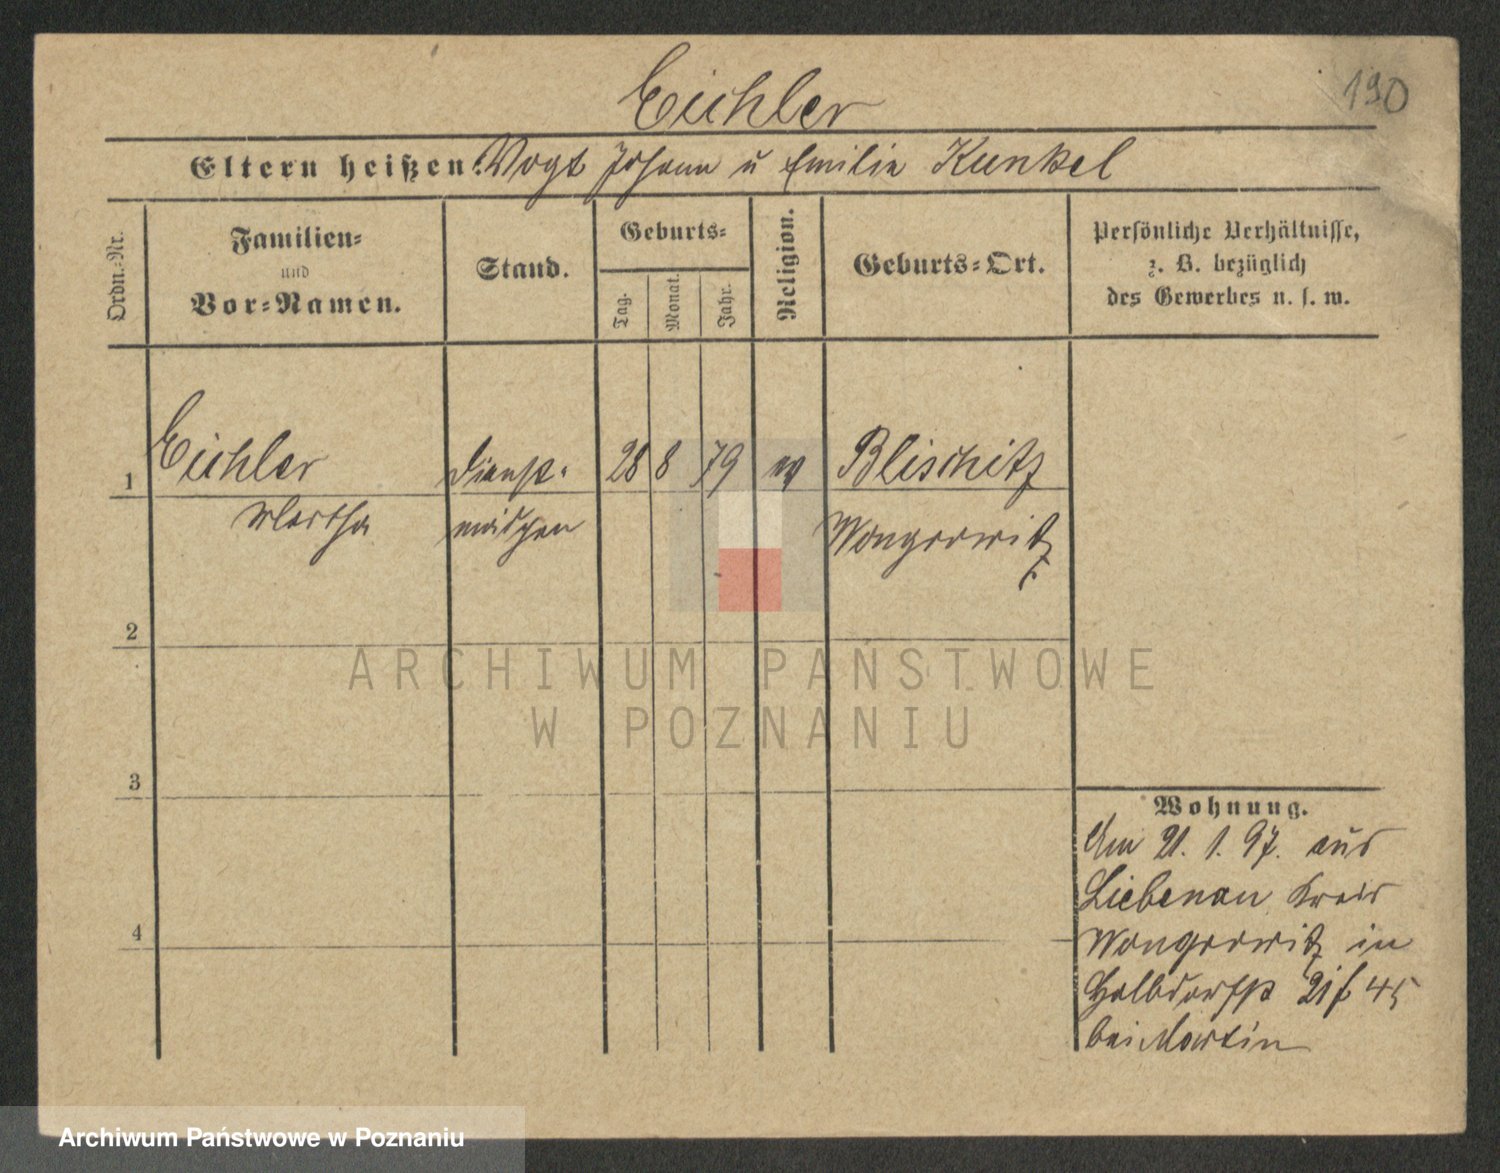 190
Eichler
Eltern heißen: Vogt Johann u Emilie Kunkel
Ordn.-Nr.
Familien-
und
Vor-Namen.
Stand.
Geburts-
Tag.
Monat.
Jahr.
Religion.
Geburts-Ort.
Persönliche Verhältnisse,
z. B. bezüglich
des Gewerbes u. s. w.
1 Eichler Dienst- 28 8 79 Blischitz
Martha mädchen Wongrowitz
2
3
4
Wohnung.
Am 21. 1. 97. aus
Liebenau Kreis
Wongrowitz in
Halbdorfst 21 45
bei Martin
ARCHIWUM PAŃSTWOWE
W POZNANIU
Archiwum Państwowe w Poznaniu